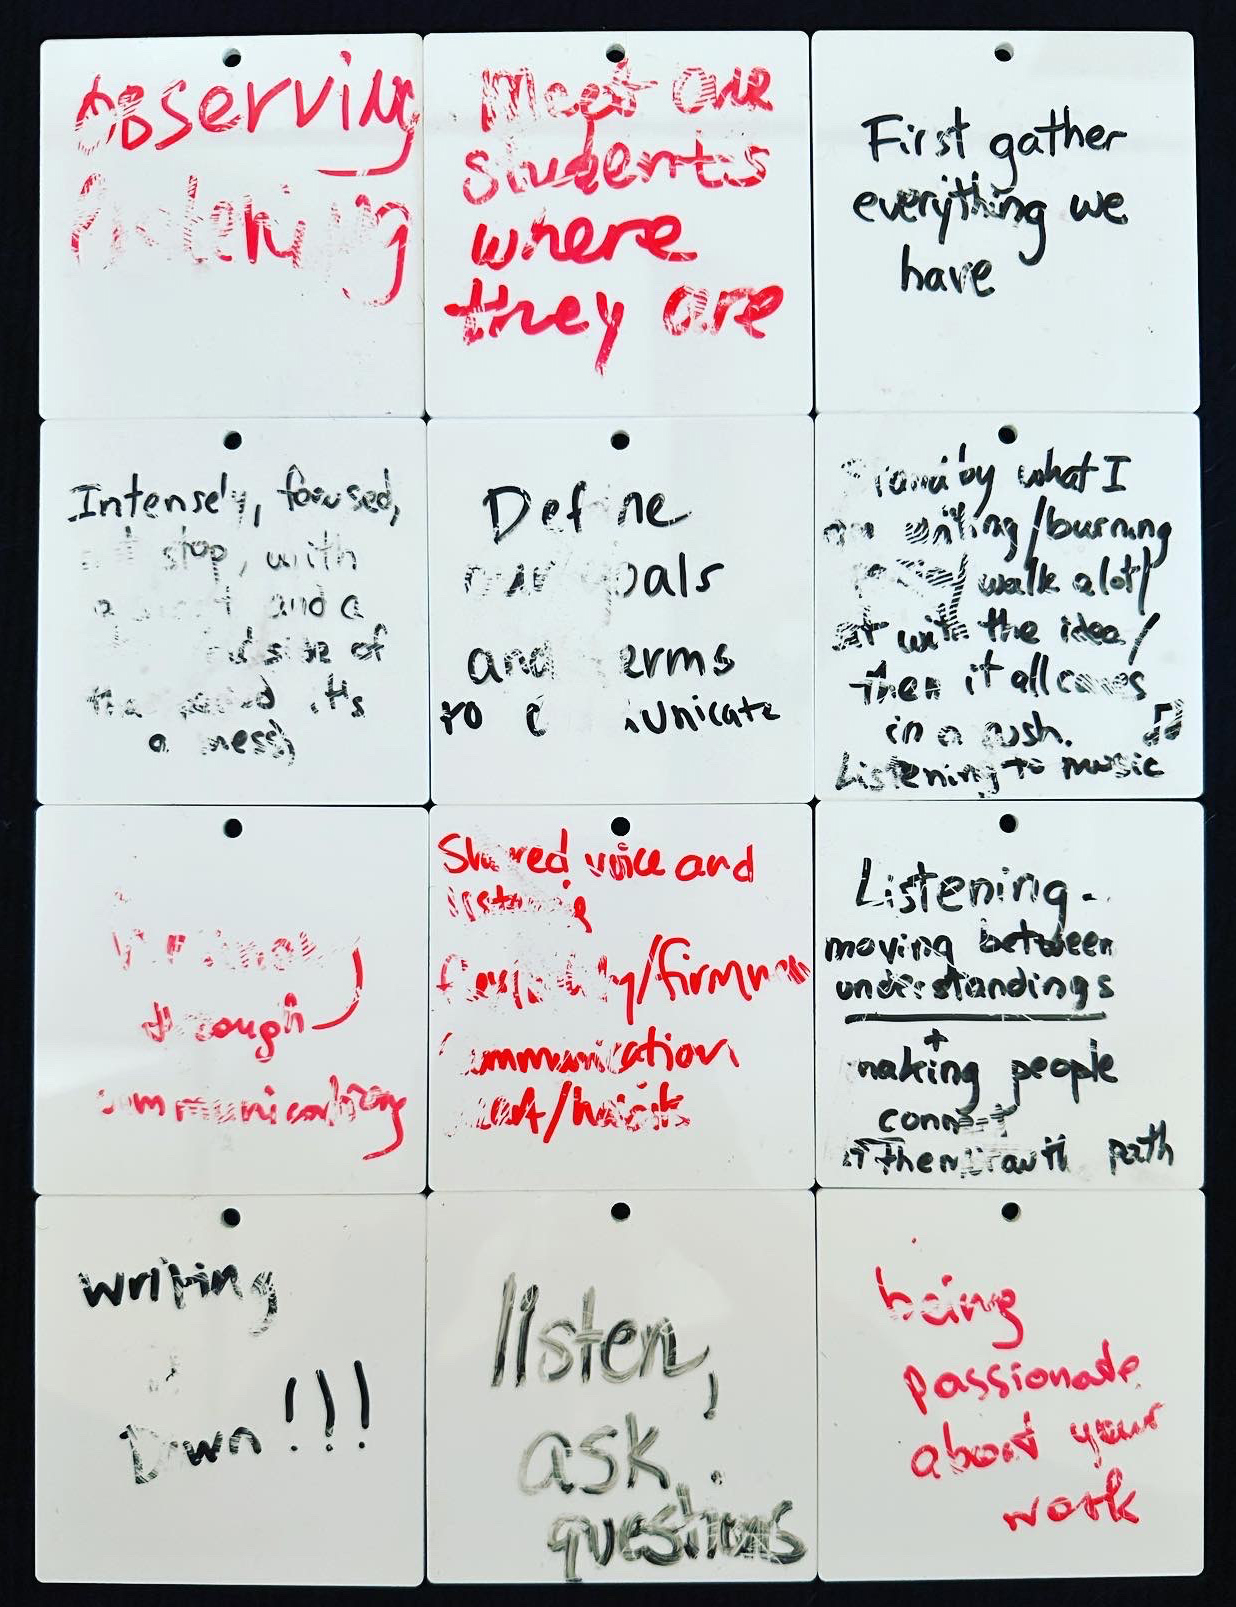 Observing
listening
Meet our
students
where
they are
First gather
everything we
have
Intensely, focused,
stop, with
and a
side of
the it's
a mess
Define
our goals
and terms
to communicate
Stand by what I
am writing/burning
walk a lot/
sit with the idea/
then it all comes
in a rush.
Listening to music
through
communicating
Shared voice and
listening
flexibility/firmness
communication
/habits
Listening -
moving between
understandings
+
making people
connect
path
writing
Down!!!
listen,
ask
questions
being
passionate
about your
work